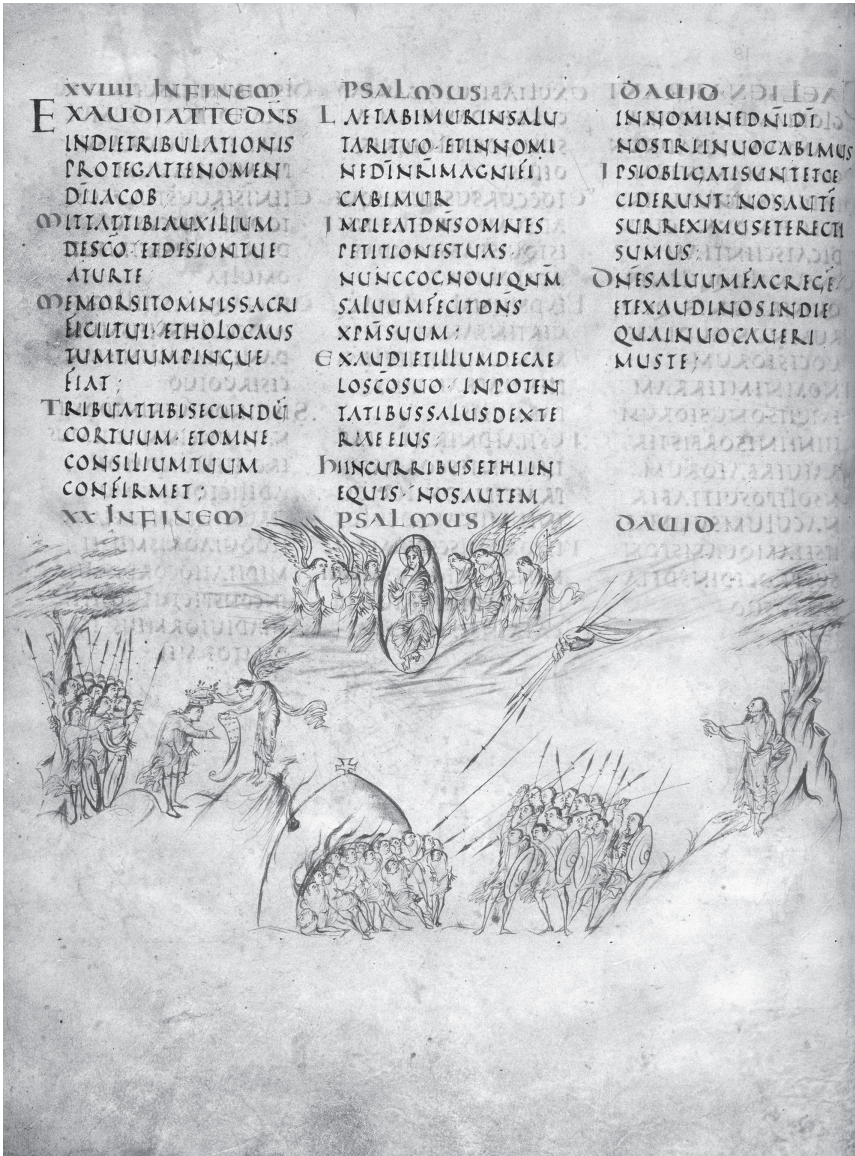 XVIIII INFINEM PSALMUS DAUID
EXAUDIATTEDN̄S
INDIETRIBULATIONIS
PROTEGATTENOMEN
DĪIACOB
MITTATTIBIAUXILIUM
DESCO ETDESIONTUE
ATURTE
MEMORSITOMNISSACRI
FICIITUI ETHOLOCAUS
TUMTUUMPINGUE
FIAT;
TRIBUATTIBISECUNDŪ
CORTUUM· ETOMNE
CONSILIUMTUUM
CONFIRMET;
LAETABIMURINSALU
TARITUO· ETINNOMI
NEDĪNR̄IMAGNIFI
CABIMUR
IMPLEATDN̄SOMNES
PETITIONESTUAS·
NUNCCOGNOUIQNM
SALUUMFECITDN̄S
XPM̄SUUM;
EXAUDIETILLUMDECAE
LOSCŌSUO· INPOTEN
TATIBUSSALUSDEXTE
RAEEIUS;
HIINCURRIBUSETHIIN
EQUIS· NOSAUTEM
INNOMINEDN̄IDĪ
NOSTRIINUOCABIMUS
IPSIOBLIGATISUNTETCE
CIDERUNT· NOSAUTĒ
SURREXIMUSETERECTI
SUMUS;
DN̄ESALUUMFACREGĒ
ETEXAUDINOSINDIE
QUAINUOCAUERI
MUSTE;
XX INFINEM PSALMUS DAUID